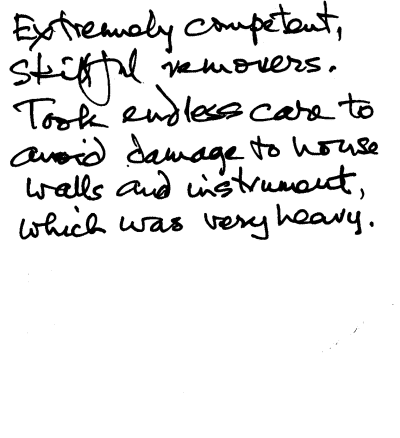 Extremely competent,
skilful removers.
Took endless care to
avoid damage to house
walls and instrument,
which was very heavy.